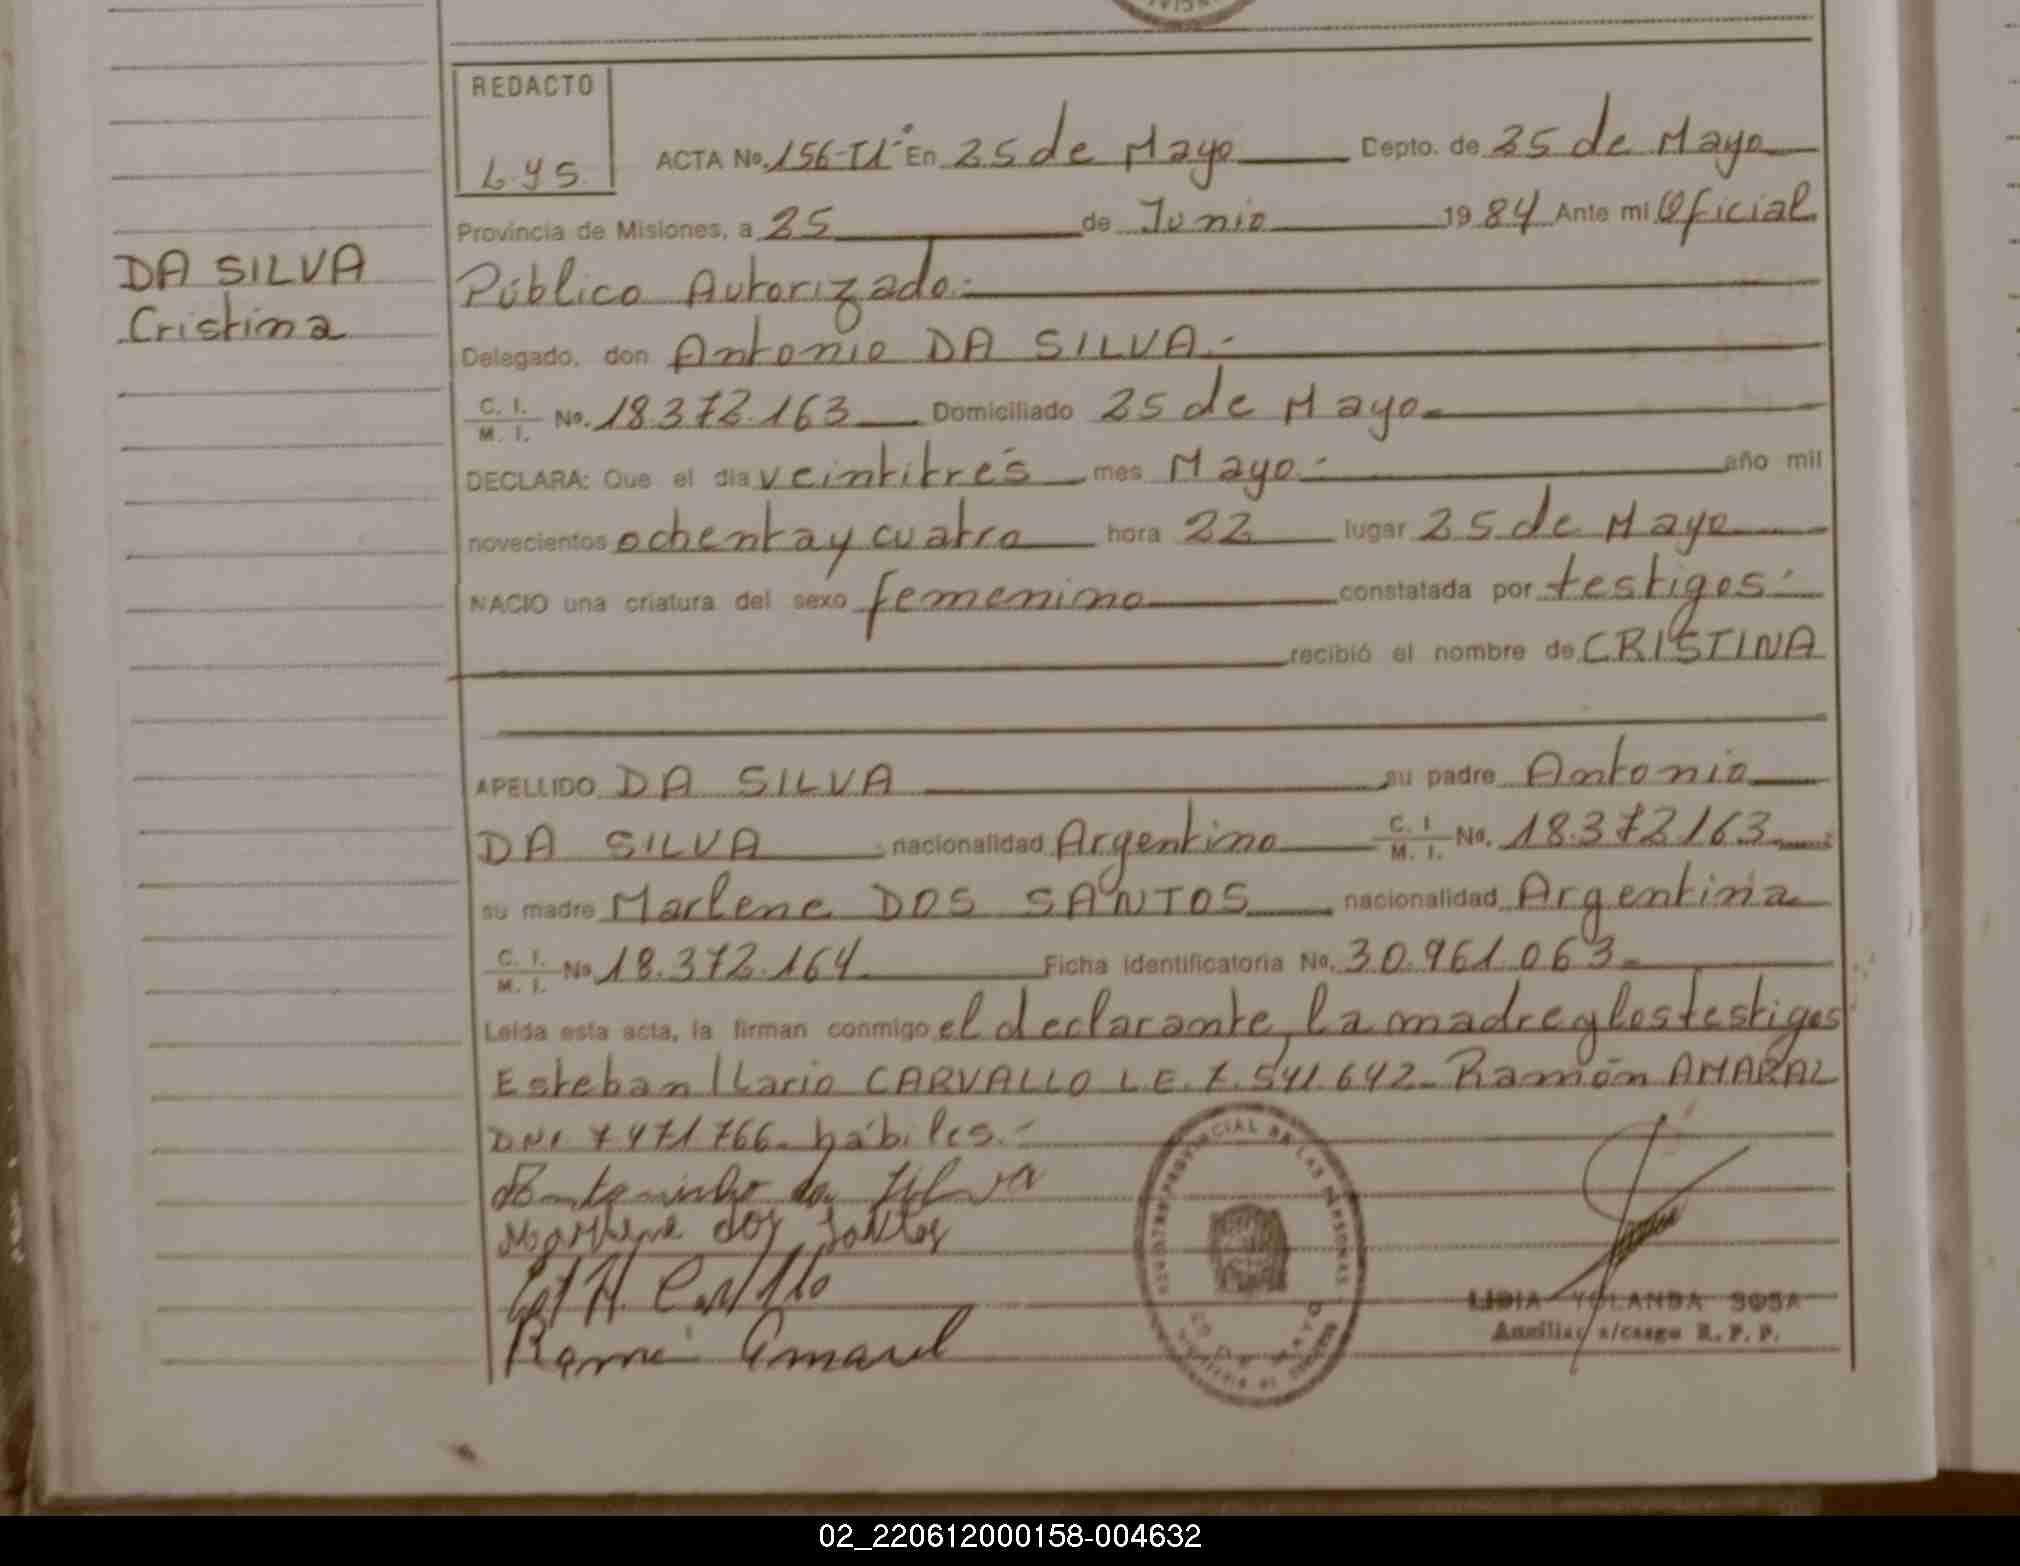 REDACTO
L.y S.
ACTA No. 156-T1° En 25 de Mayo Depto. de 25 de Mayo
Provincia de Misiones, a 25 de Junio 1984 Ante mi Oficial
DA SILVA
Cristina
Público Autorizado.-
Delegado, don Antonio DA SILVA.-
C. I. / M. I. No. 18.372.163 Domiciliado 25 de Mayo
DECLARA: Que el dia veintitrés mes Mayo.- año mil
novecientos ochenta y cuatro hora 22 lugar 25 de Mayo
NACIO una criatura del sexo femenino constatada por testigos.-
recibió el nombre de CRISTINA
APELLIDO DA SILVA su padre Antonio
DA SILVA nacionalidad Argentino C. I. / M. I. No. 18.372163
su madre Marlene DOS SANTOS nacionalidad Argentina
C. I. / M. I. No 18.372.164 Ficha identificatoria No. 30.961.063
Leida esta acta, la firman conmigo el declarante, la madre y los testigos
Esteban Ilario CARVALLO L.E. 7.541.642- Ramón AMARAL
DNI 7471766- hábiles.-
da Silva
Marlene dos Santos
Ramón Amaral
PROVINCIAL DE LAS PERSONAS
25 DE MAYO
LIDIA YOLANDA SOSA
Auxiliar a/cargo R. P. P.
02_220612000158-004632